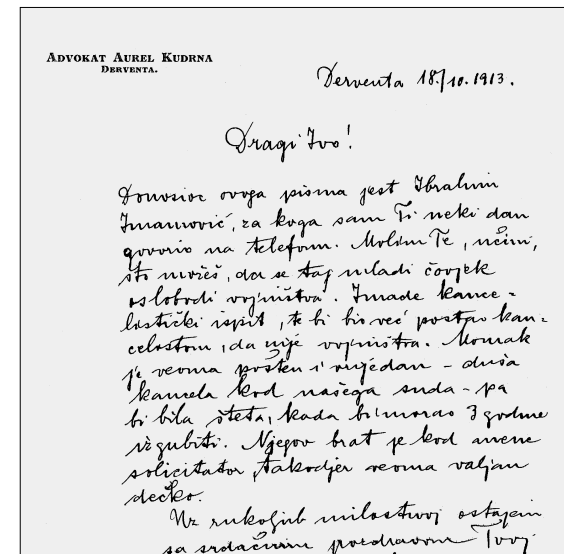 ADVOKAT AUREL KUDRNA
DERVENTA.
Derventa 18./10. 1913.
Dragi Ivo!
Donosioc ovoga pisma jest Ibrahim
Imamović, za koga sam Ti neki dan
govorio na telefonu. Molim Te, učini,
što možeš, da se taj mladi čovjek
oslobodi vojništva. Imade kance-
listički ispit, te bi bio već postao kan-
celistom, da nije vojništva. Momak
je veoma pošten i vrijedan - duša
kancela kod našega suda - pa
bi bila šteta, kada bi morao 3 godine
izgubiti. Njegov brat je kod mene
solicitator, takodjer veoma valjan
dečko.
Uz rukoljub milostivoj ostajem
sa srdačnim pozdravom Tvoj